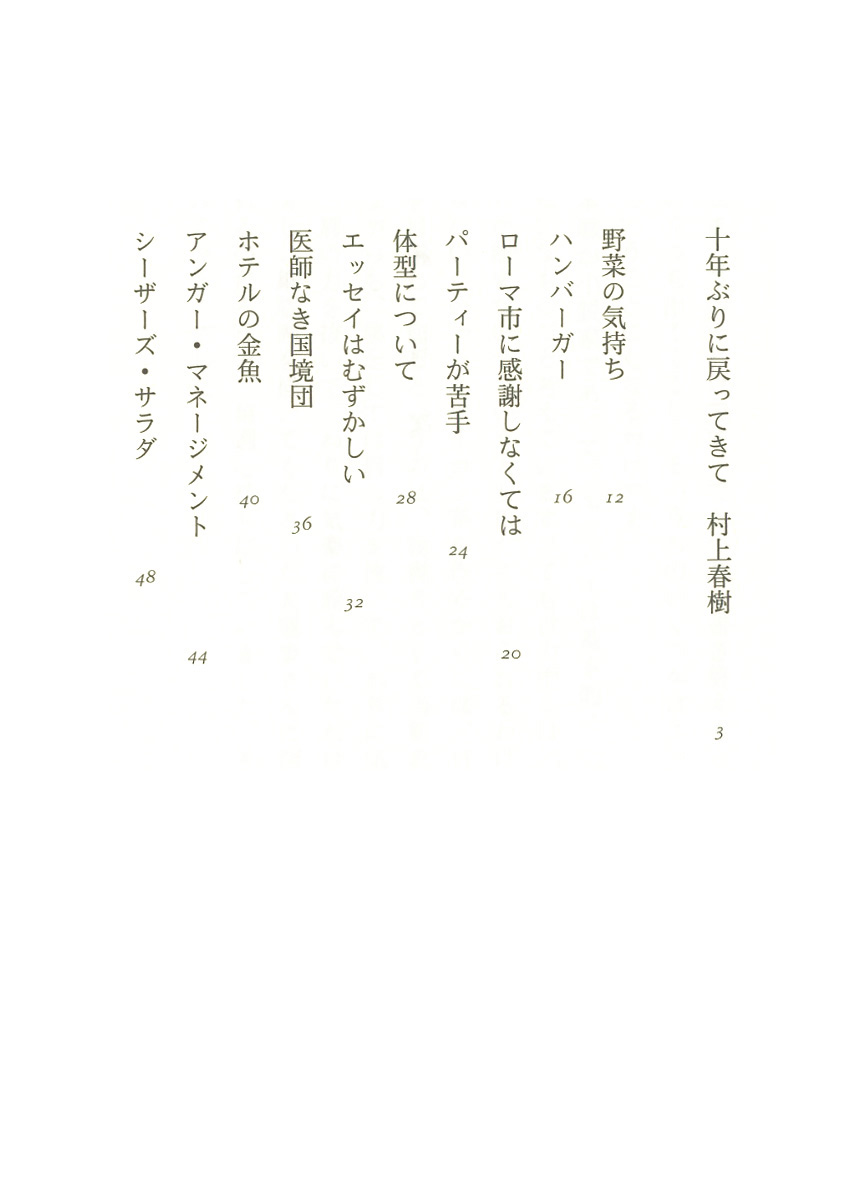 十年ぶりに戻ってきて　村上春樹 3
野菜の気持ち 12
ハンバーガー 16
ローマ市に感謝しなくては 20
パーティーが苦手 24
体型について 28
エッセイはむずかしい 32
医師なき国境団 36
ホテルの金魚 40
アンガー・マネージメント 44
シーザーズ・サラダ 48